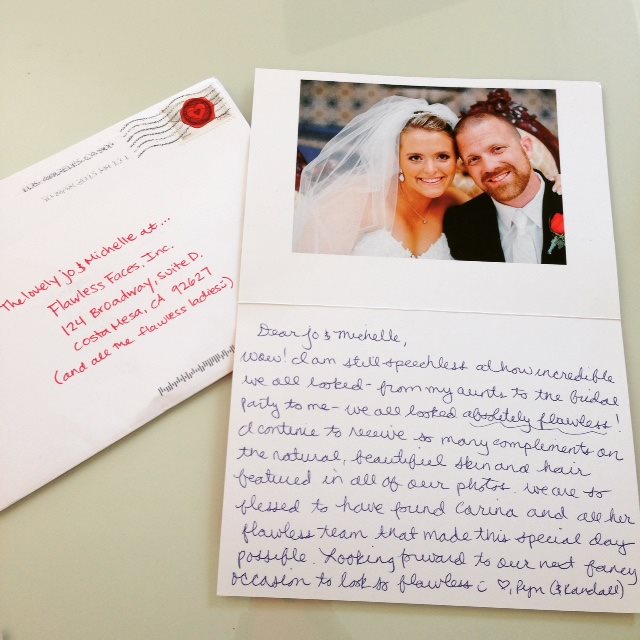 The lovely Jo & Michelle at...
Flawless Faces, Inc.
124 Broadway, Suite D.
Costa Mesa, CA 92627
(and all the flawless ladies :))
Dear Jo & Michelle,
Wow! I am still speechless at how incredible
we all looked - from my aunts to the bridal
party to me - we all looked absolutely flawless!
I continue to receive so many complements on
the natural, beautiful skin and hair
featured in all of our photos. We are so
blessed to have found Carina and all her
flawless team that made this special day
possible. Looking forward to our next fancy
occasion to look so flawless :) ♡, (& Randall)